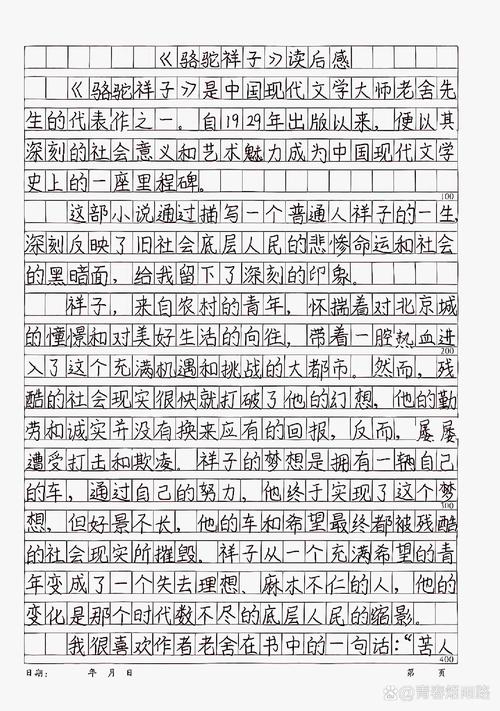 《骆驼祥子》读后感
《骆驼祥子》是中国现代文学大师老舍先
生的代表作之一。自1929年出版以来，便以其
深刻的社会意义和艺术魅力成为中国现代文学
史上的一座里程碑。
100
这部小说通过描写一个普通人祥子的一生，
深刻反映了旧社会底层人民的悲惨命运和社会
的黑暗面，给我留下了深刻的印象。
祥子，来自农村的青年，怀揣着对北京城
的憧憬和对美好生活的向往，带着一腔热血进
200
入了这个充满机遇和挑战的大都市。然而，残
酷的社会现实很快就打破了他的幻想，他的勤
劳和诚实并没有换来应有的回报，反而，屡屡
遭受打击和欺凌。祥子的梦想是拥有一辆自己
的车，通过自己的努力，他终于实现了这个梦
300
想，但好景不长，他的车和希望最终都被残酷
的社会现实所摧毁。祥子从一个充满希望的青
年变成了一个失去理想、麻木不仁的人，他的
变化是那个时代数不尽的底层人民的缩影。
我很喜欢作者老舍在书中的一句话：“苦人
400
日期： 年 月 日 第 页